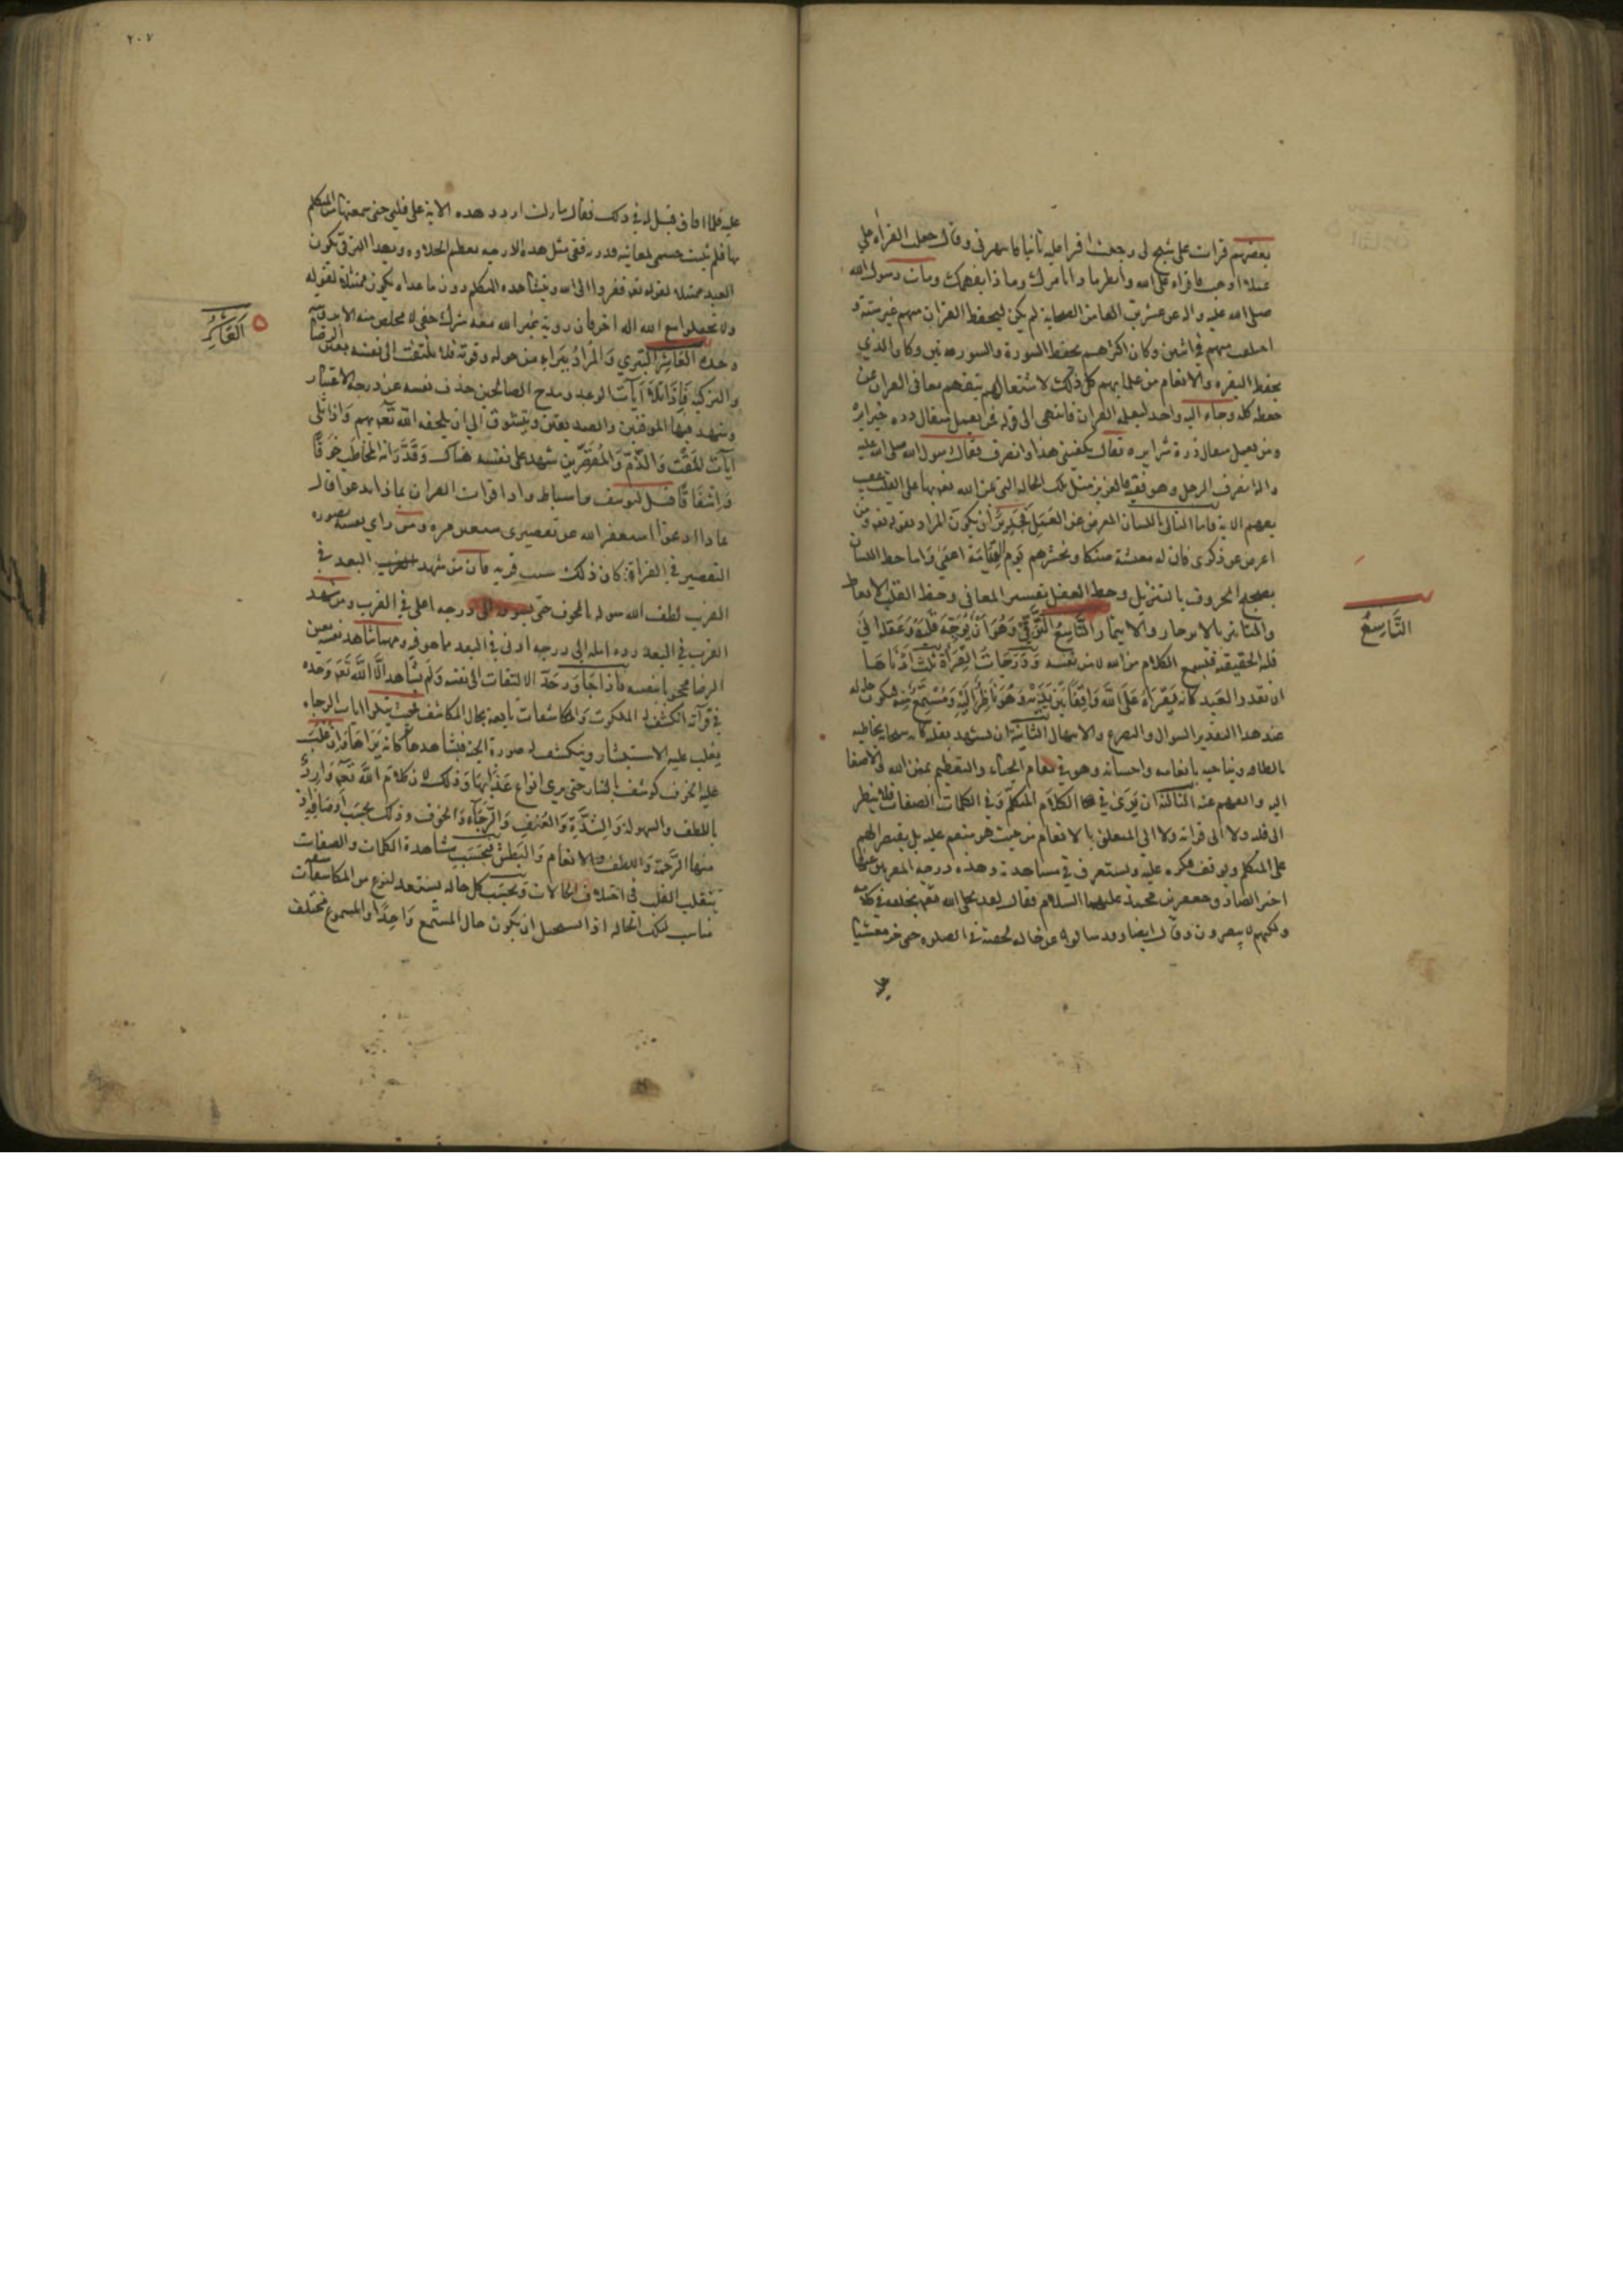 بعضهم قرات على شيخ لى ثم رجعت اقرا عليه ثانيا فانتهرنى وقال جعلت القراه على
عملا اذهب فاقراء على الله وانظر ما ذا يامرك وما ذا يفهمك ومات رسول الله
صلى الله عليه واله عن عشرين الفا من الصحابة لم يكن ليحفظ القران منهم غير ستة و
اختلف منهم فى اثنين وكان اكثرهم يحفظ السورة والسورتين وكان الذي
يحفظ البقره والانعام من علمائهم كل ذلك لاشتغالهم بتفهم معانى القران عن
حفظه كله وجاء اليه واحد ليعلمه القران فانتهى الى قوله فمن يعمل مثقال ذره خيرا يره
ومن يعمل مثقال ذرة شرا يره فقال يكفينى هذا وانصرف فقال رسول الله صلى الله عليه
واله انصرف الرجل وهو فقيه فالعزيز مثل تلك الحاله التى من الله تعه بها على القلب عقيب
تفهم الاية فاما التالى باللسان المعرض عن العمل فجدير ان يكون المراد بقوله تعه ومن
اعرض عن ذكرى فان له معيشة ضنكا ونحشرهم يوم القيامة اعمى واما حظ اللسان
تصحيح الحروف بالترتيل وحظ العقل تفسير المعانى وحظ القلب الاتعاظ
والتاثر بالانزجار والايتمار التاسع الترقى وهو ان يوجه قلبه وعقله الى
قبلة الحقيقه فيسمع الكلام من الله لا من نفسه ودرجات القراة ثلث ادناها
ان يقدر العبد كانه يقراء على الله واقفا بين يديه وهو ناظر اليه ومستمع منه فيكون حاله
عند هذا التقدير السوال والتضرع والابتهال الثانية ان يشهد بقلبه كانه سبحانه يخاطبه
بالطافه ويناجيه بانعامه واحسانه وهو فى مقام الحياء والتعظيم لمنن الله والاصغا
اليه والفهم عنه الثالثة ان يرى فى الكلام المتكلم وفى الكلمات الصفات فلا ينظر
الى قلبه ولا الى قراته ولا الى المتعلق بالانعام من حيث هو منعم عليه بل يقصر الهم
على المتكلم ويوقف فكره عليه ويستغرق فى مشاهدته وهذه درجه المقربين وعنها
اخبر الصادق جعفر بن محمد عليهما السلام فقال لقد تجلى الله تعه لخلقه فى كلامه
ولكنهم لا يبصرون وقال ايضا وقد سالوه عن حاله لحقته فى الصلوه حتى خر مغشيا
عليه
التاسع
٢٠٧
عليه فلما افاق قيل له فى ذلك فقال ما زلت اردد هذه الاية على قلبى حتى سمعتها من المتكلم
بها فلم يثبت جسمى لمعاينة قدرته ففى مثل هذه الدرجه تعظم الحلاوه وبهذا الترقى يكون
العبد ممتثلا لقوله تعه ففروا الى الله وبمشاهده المتكلم دون ما عداه يكون ممتثلا لقوله
ولا تجعلوا مع الله الها اخر فان روية غير الله معه شرك خفى لا مخلص منه الا برويته
وحده العاشر التبري والمراد به ان يتبراء من حوله وقوته فلا يلتفت الى نفسه بعين الرضا
والتزكية فاذا تلا آيات الوعد ومدح الصالحين حذف نفسه عن درجه الاعتبار
وشهد فيها الموقنين والصديقين ويتشوق الى ان يلحقه الله تعه بهم واذا تلى
آيات المقت والذم والمقصرين شهد على نفسه هناك وقدر انه المخاطب خوفا
واشفاقا قيل ليوسف بن اسباط اذا قرات القران بماذا تدعو فقال
بماذا ادعوا استغفر الله عن تقصيرى سبعين مره ومن راى نفسه بصوره
التقصير فى القراة كان ذلك سبب قربه فان من شهد البعد فى
القرب لطف الله سوله بالخوف حتى يسوقه الى درجه اعلى فى القرب ومن شهد
القرب فى البعد رده امله الى درجه ادنى فى البعد مما هو فيه ومهما شاهد نفسه بعين
الرضا محجوبا بنفسه فاذا جاوز حد الالتفات الى نفسه ولم يشاهد الا الله تعه وحده
فى قرآته انكشف له الملكوت والمكاشفات تابعه بحال المكاشف فحيث يتلوا ايات الرجاء
يغلب عليه الاستبشار وينكشف له صورة الجنه فيشاهدها كانه يراها وان غلب
عليه الخوف كوشف بالنار حتى يرى انواع عذابها وذلك لان كلام الله تعه وارد
باللطف والسهوله والشدة والعنف والرجاء والخوف وذلك بحسب اوصافه اذ
منها الرحمة واللطف والانعام والبطش فبحسب مشاهدة الكلمات والصفات
ينقلب القلب فى اختلاف الحالات وبحسب كل حاله يستعد لنوع من المكاشفات
مناسب لتلك الحاله اذ يستحيل ان يكون حال المستمع واحدا والمسموع مختلف
العاشر